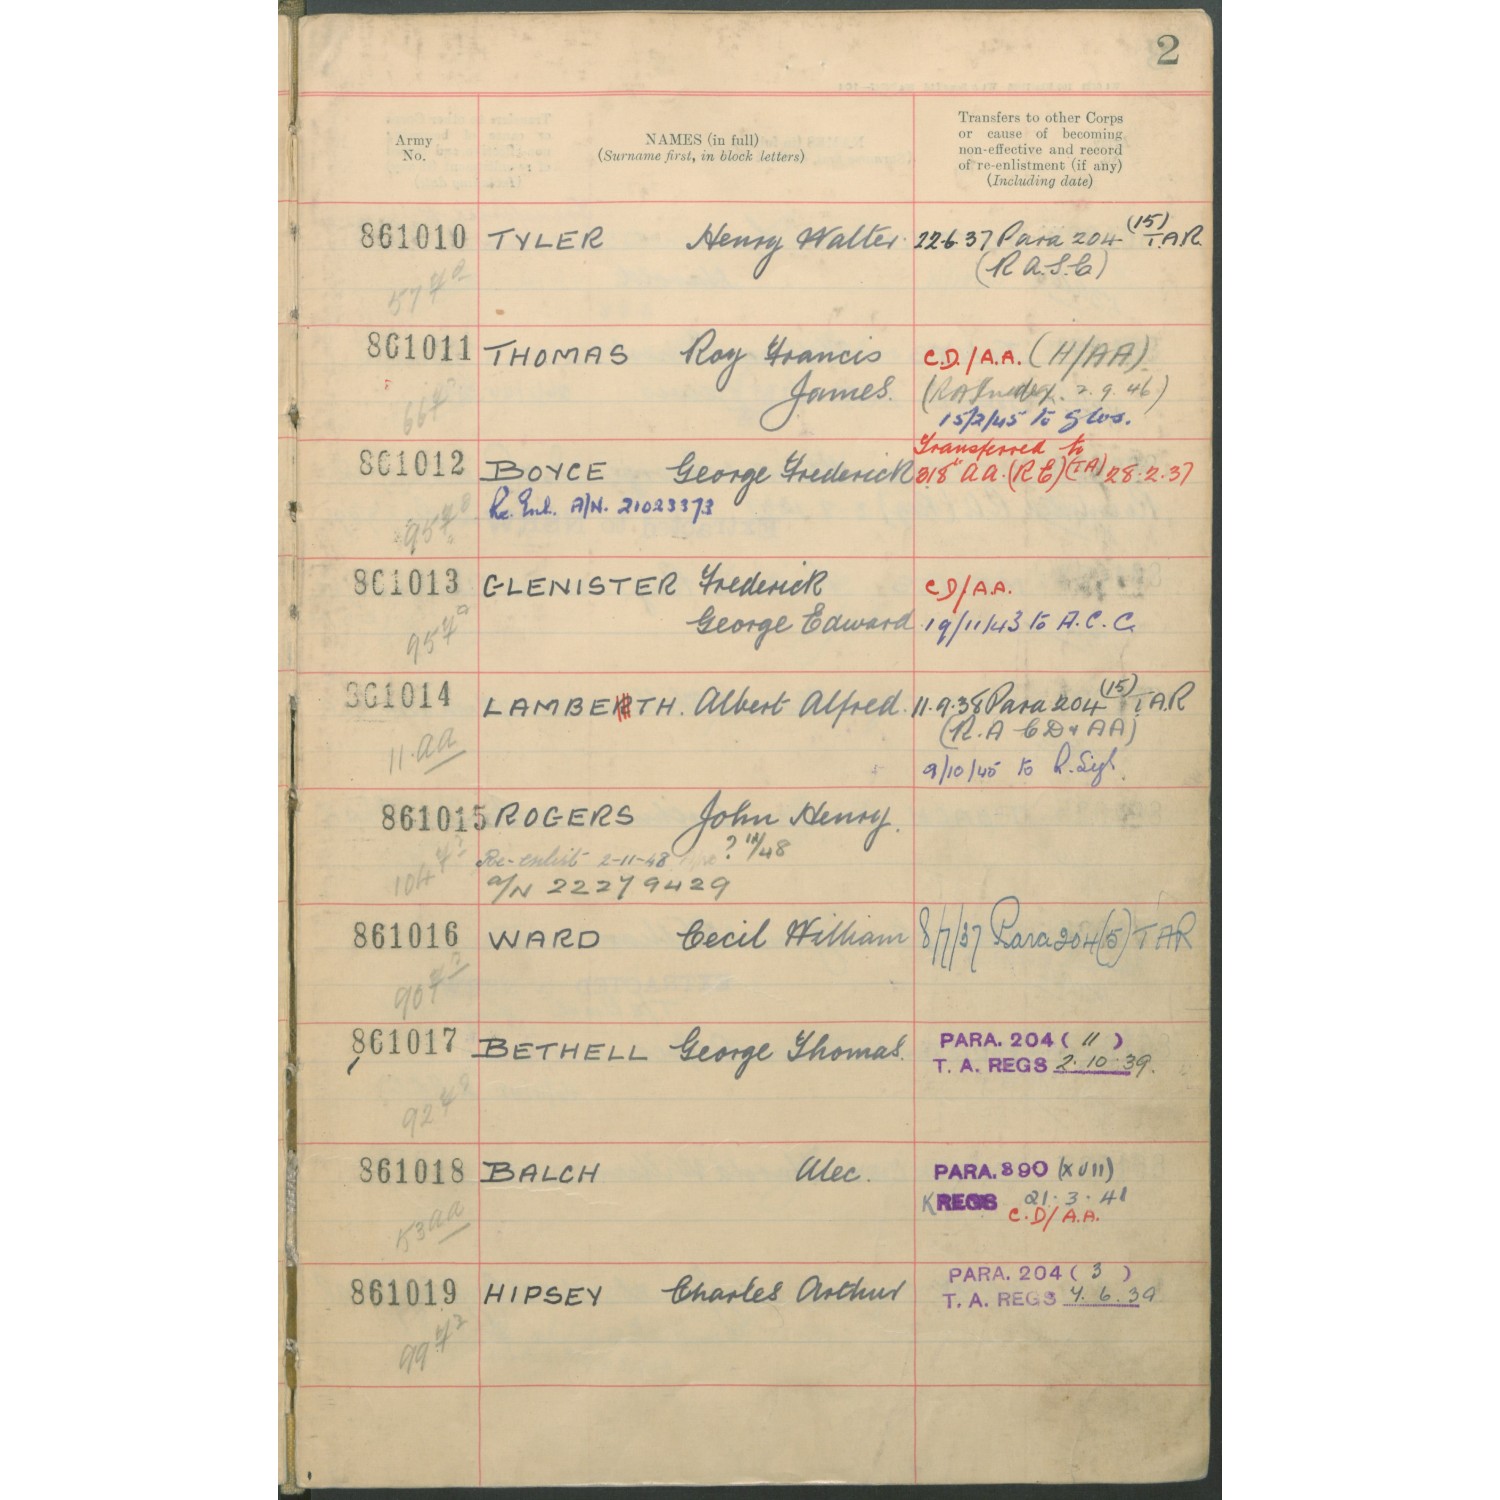 2
Army
No.
NAMES (in full)
(Surname first, in block letters)
Transfers to other Corps
or cause of becoming
non-effective and record
of re-enlistment (if any)
(Including date)
861010 TYLER Henry Walter 22·6·37 Para 204 (15) T.A.R.
(R.A.S.C)
57
861011 THOMAS Roy Francis C.D./A.A. (H/AA)
James. 2.9.46)
66
15/2/45 to Glos.
861012 BOYCE George Frederick Transferred to
318 A.A. (R E) (TA) 28.2.37
Re. Enl. A/N. 21023373
95
861013 GLENISTER Frederick C D/A.A.
George Edward 19/11/43 to A.C.C.
95
861014 LAMBERTH. Albert Alfred. 11.9.38 Para 204 (15) T.A.R
(R.A C D & AA)
11.aa
9/10/45 to R.Sigs.
861015 ROGERS John Henry.
Re-enlist 2-11-48 ? 11/48
104
a/N 22279429
861016 WARD Cecil William 8/7/37 Para 204 (5) TAR
90
861017 BETHELL George Thomas. PARA. 204 ( 11 )
T. A. REGS 2.10.39.
92
861018 BALCH Alec. PARA. 390 (XVII)
K REGS 21.3.41
C.D/A.A.
53 aa
861019 HIPSEY Charles Arthur PARA. 204 ( 3 )
T. A. REGS 7.6.39
99